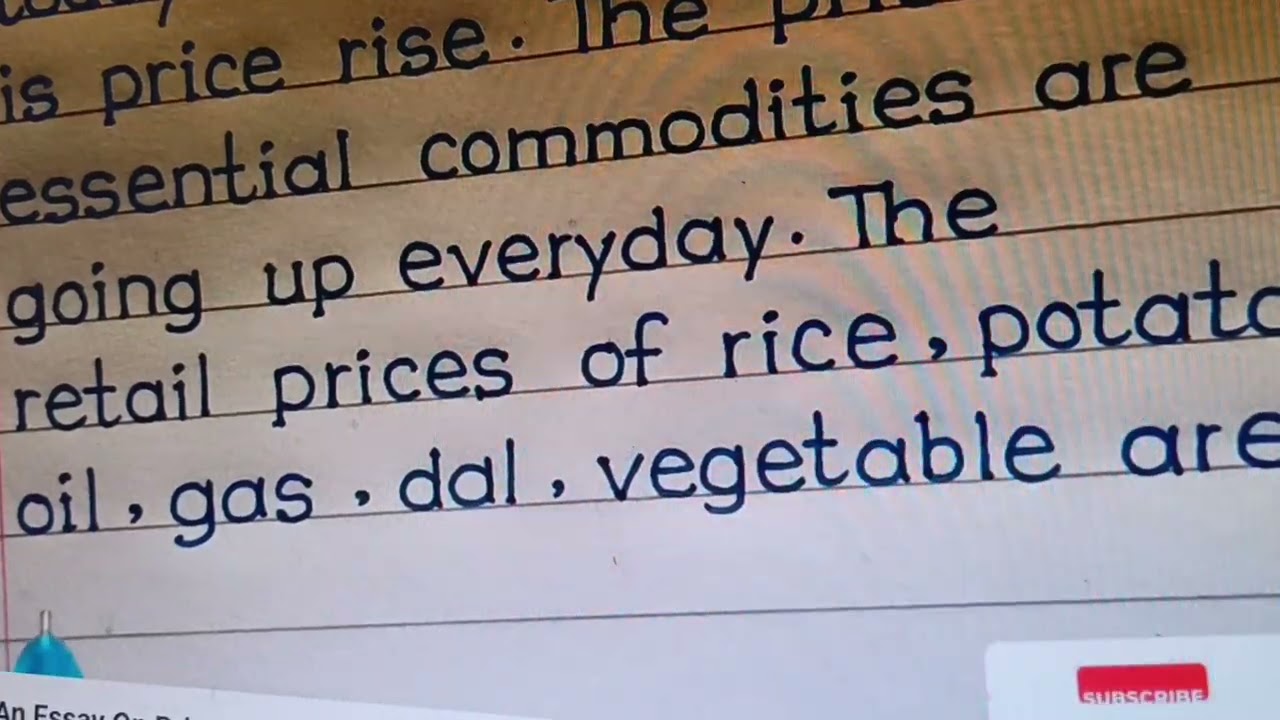 is price rise. The
essential commodities are
going up everyday. The
retail prices of rice, potato
oil, gas, dal, vegetable are
An Essay On
SUBSCRIBE